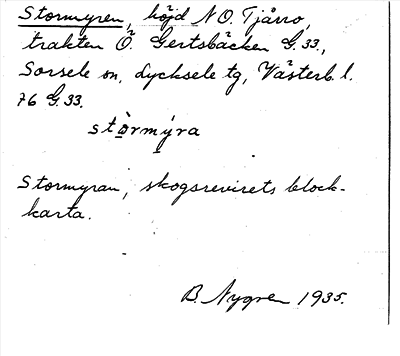 Stormyren, höjd N O. Tjårro,
trakten Ö. Gertsbäcken G. 33.,
Sorsele sn, Lycksele tg, Västerb. l.
76 G. 33.
stòrmýra
Stormyran, skogsrevirets block-
karta.
B. Nygren 1935.